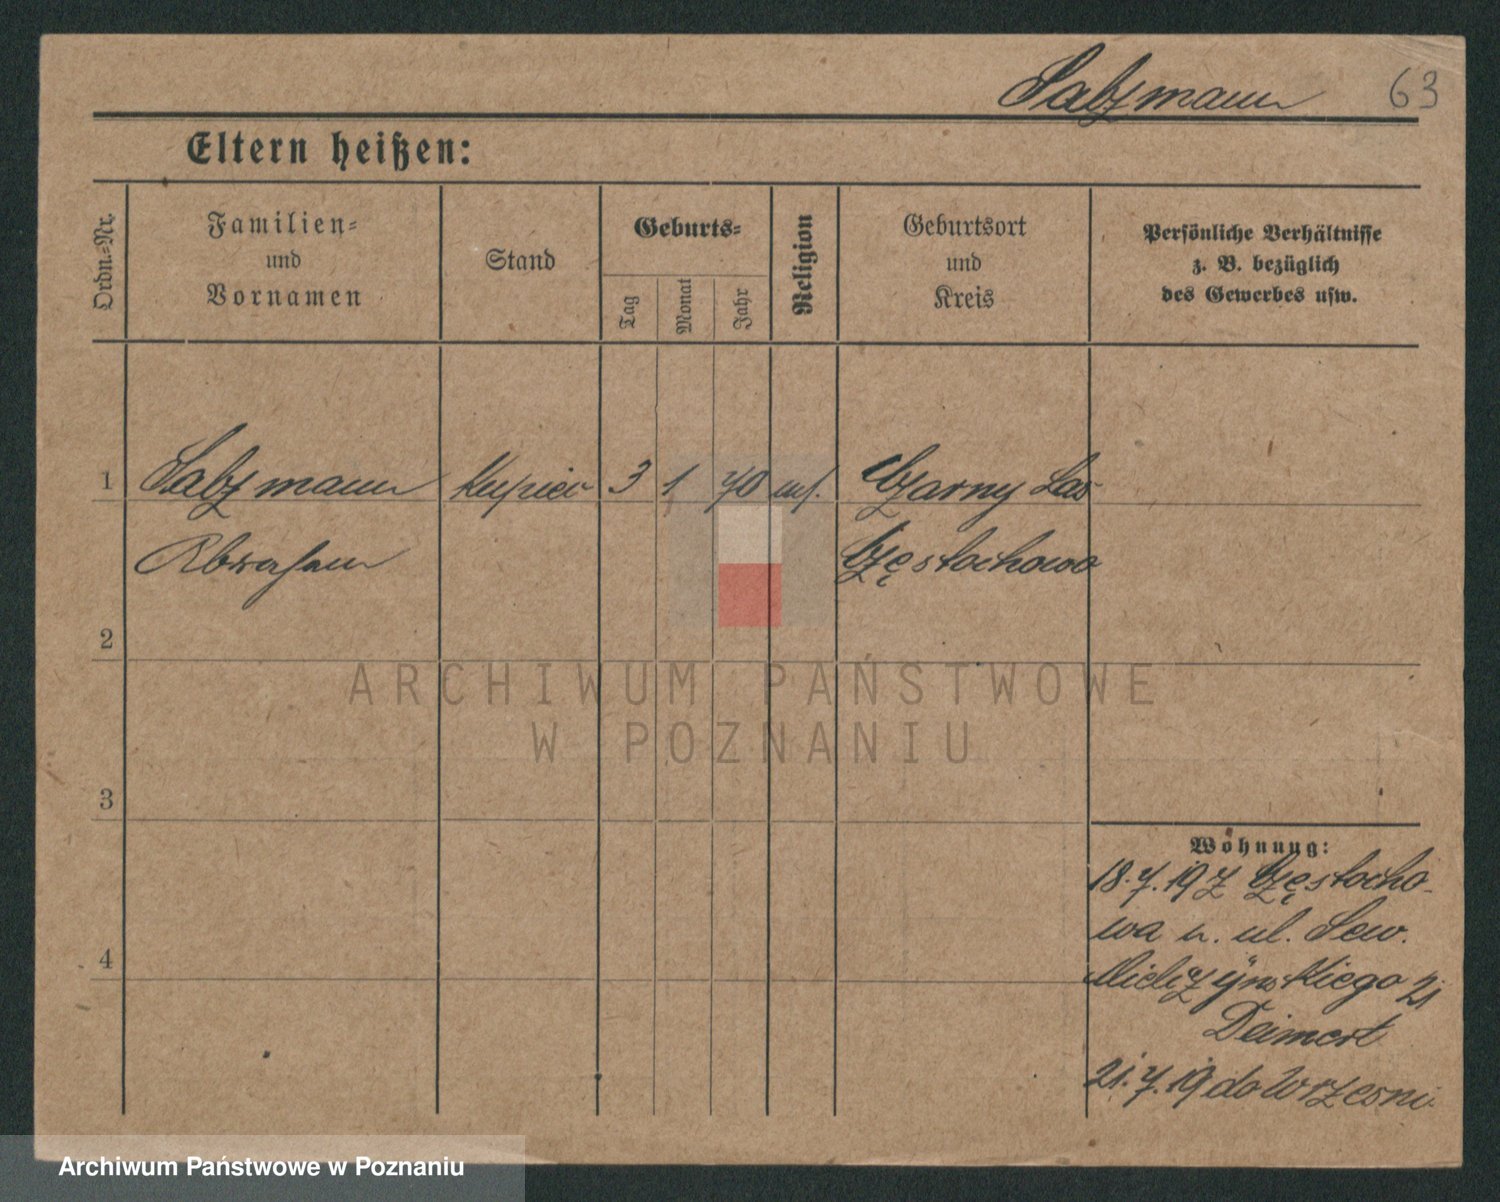 Salzmann 63
Eltern heißen:
Ordn.-Nr.
Familien-
und
Vornamen
Stand
Geburts-
Tag
Monat
Jahr
Religion
Geburtsort
und
Kreis
Persönliche Verhältnisse
z. B. bezüglich
des Gewerbes usw.
1 Salzmann kupiec 3 1 70 Czarny Las
Abraham Częstochowo
2
3
4
Wohnung:
18.7.19 z Częstocho-
wa ul. Sew.
21
21.7.19 do Wrzesni
ARCHIWUM PAŃSTWOWE
W POZNANIU
Archiwum Państwowe w Poznaniu